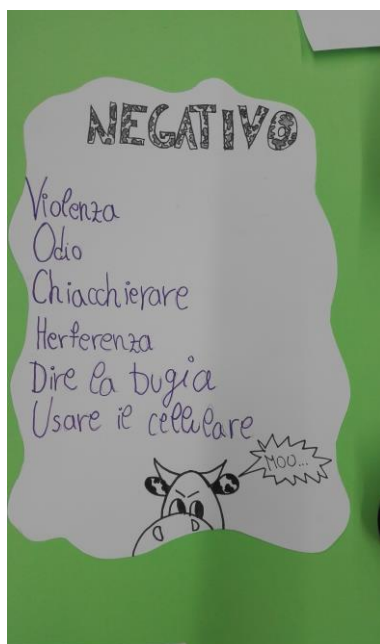 NEGATIVO
Violenza
Odio
Chiacchierare
Herferenza
Dire la bugia
Usare il cellulare
MOU...